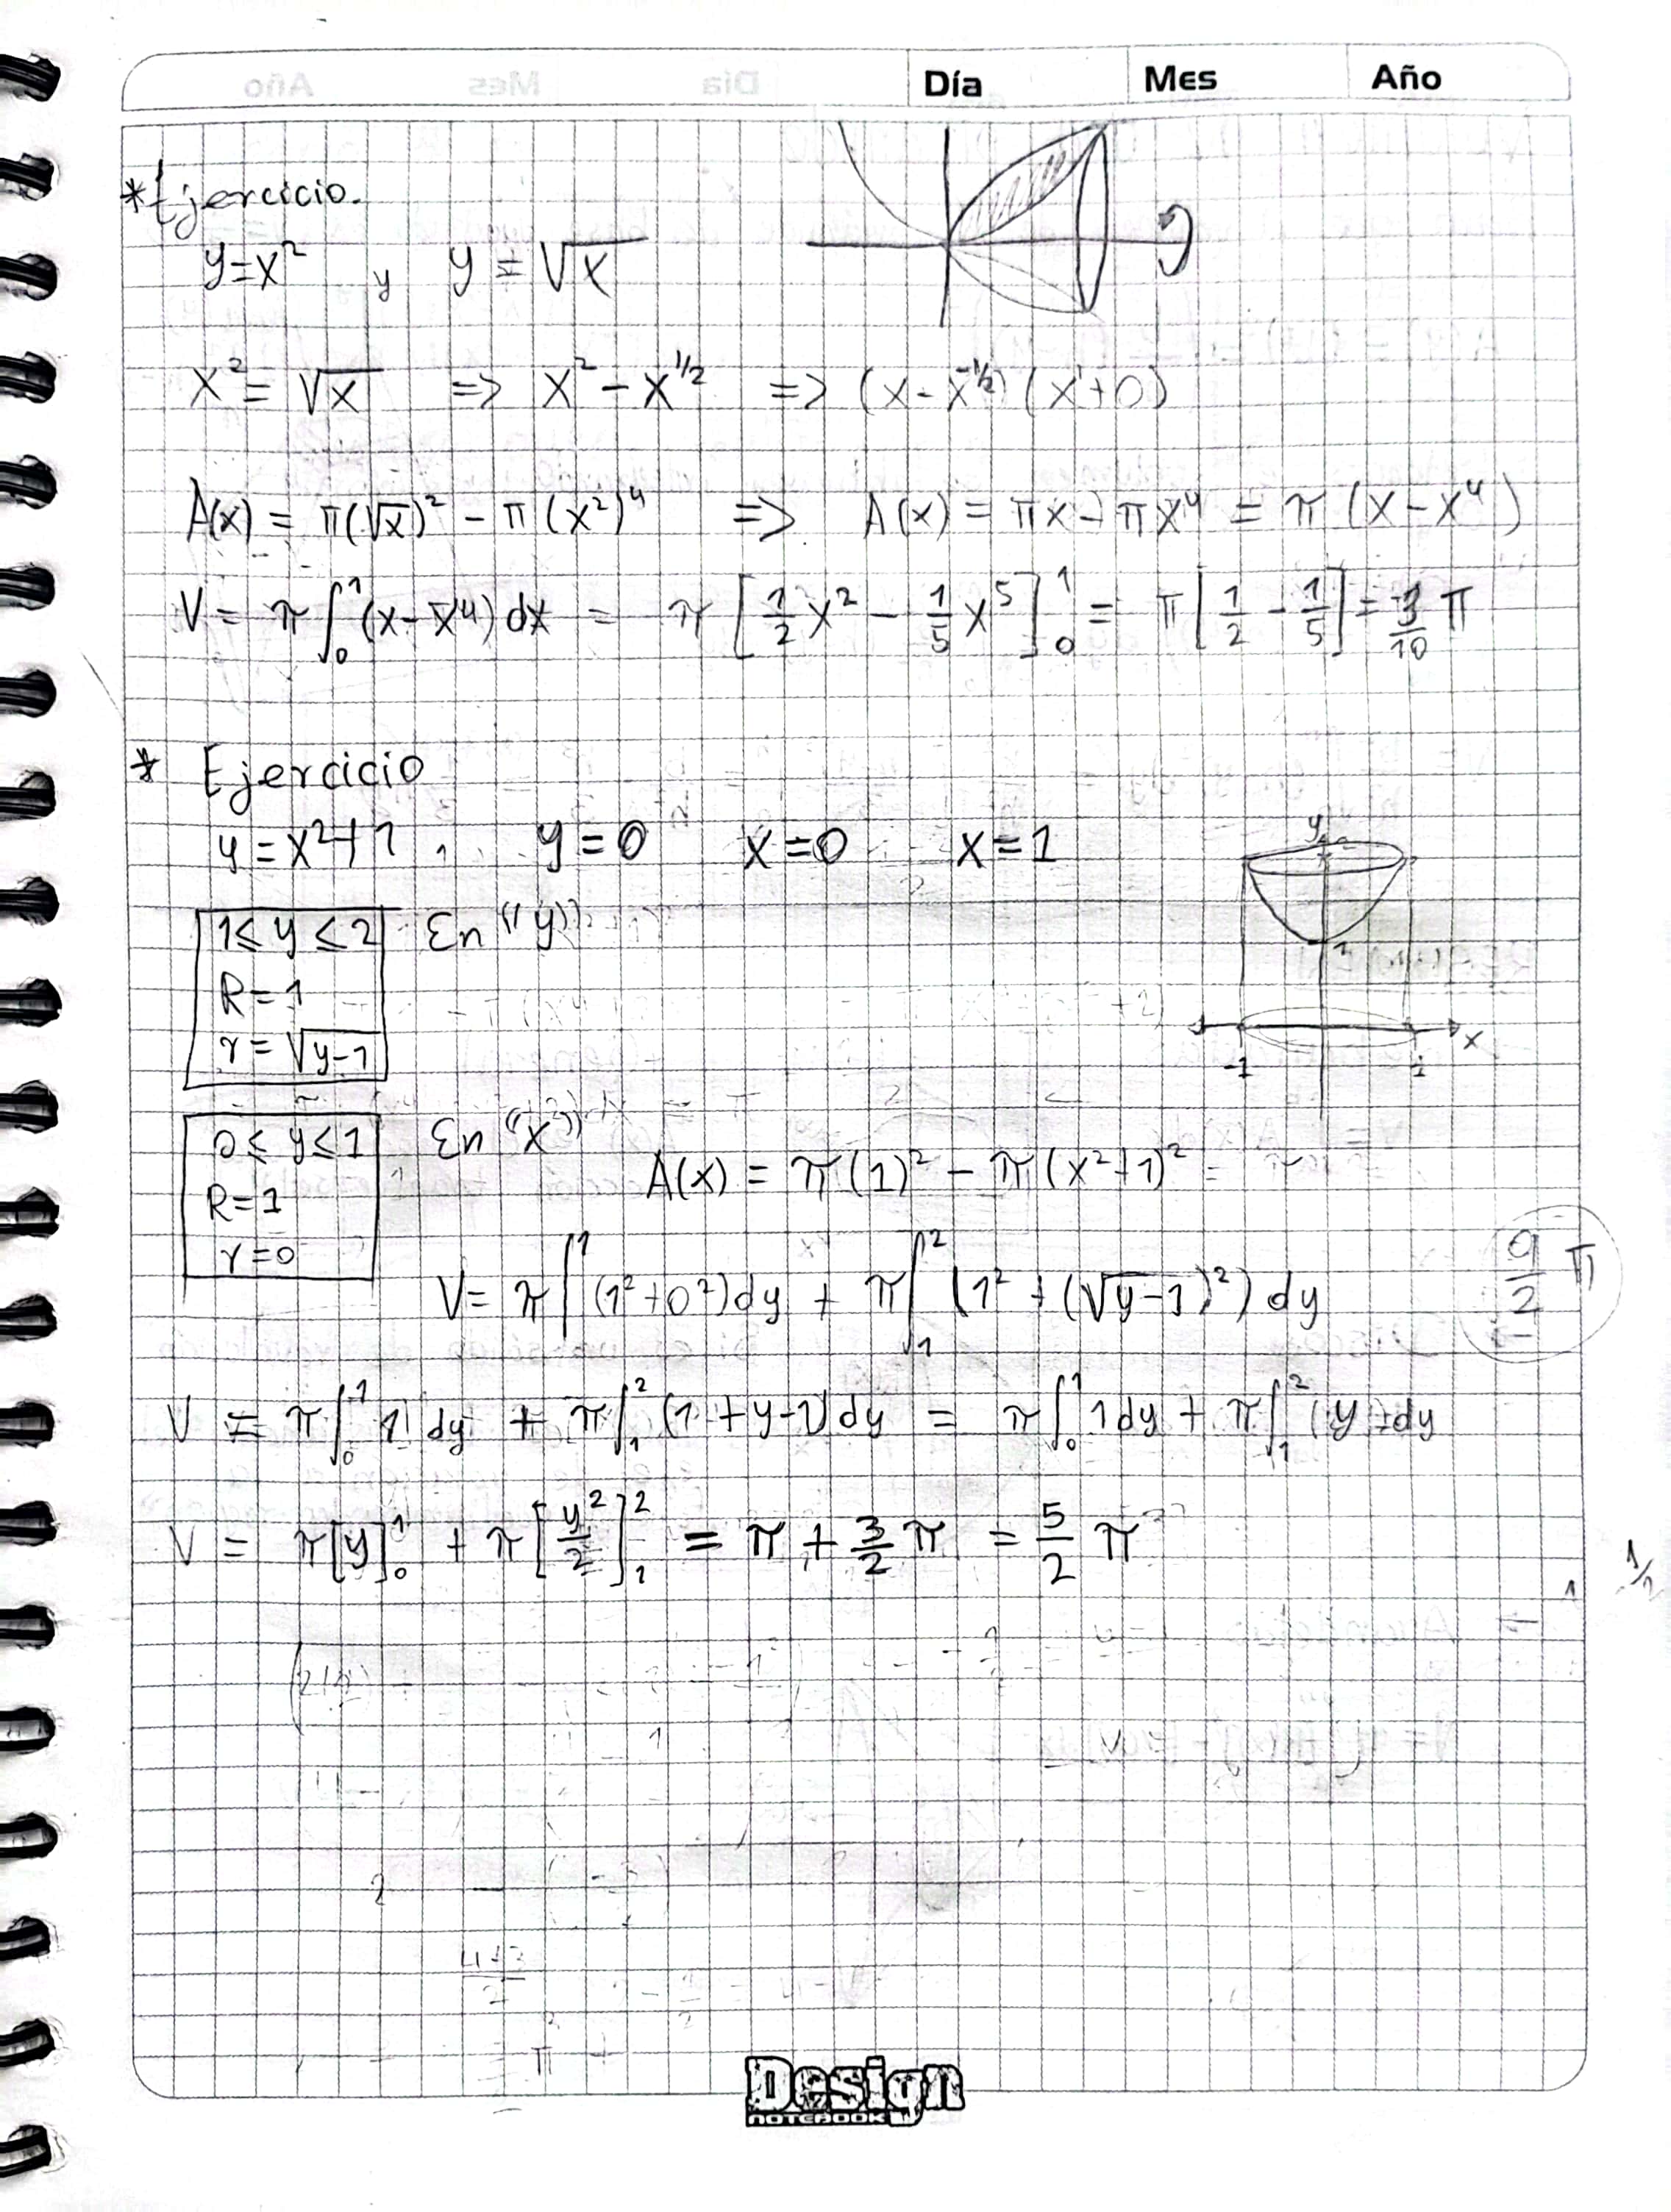 Día Mes Año
*Ejercicio.
y=x² y y = √x
x² = √x => x² - x^1/2 => (x - x^-1/2) (x¹+0)
A(x) = π(√x)² - π(x²)⁴ => A(x) = πx - πx⁴ = π(x - x⁴)
V = π∫₀¹(x - x⁴) dx = π[1/2 x² - 1/5 x⁵]₀¹ = π[1/2 - 1/5] = 3/10 π
* Ejercicio
y = x²+1, y=0 x=0 x=1
y
1
x
-1 1
1≤y≤2 En "y"
R=1
r=√y-1
0≤y≤1 En "x"
R=1
r=0
A(x) = π(1)² - π(x²+1)² =
V = π∫¹(1²+0²)dy + π∫₁²(1² + (√y-1)²) dy
9/2 π
V = π∫₀¹ 1 dy + π∫₁²(1+y-1)dy = π∫₀¹ 1dy + π∫₁²(y)dy
V = π[y]₀¹ + π[y²/2]₁² = π + 3/2 π = 5/2 π
1/2
Design
NOTEBOOK